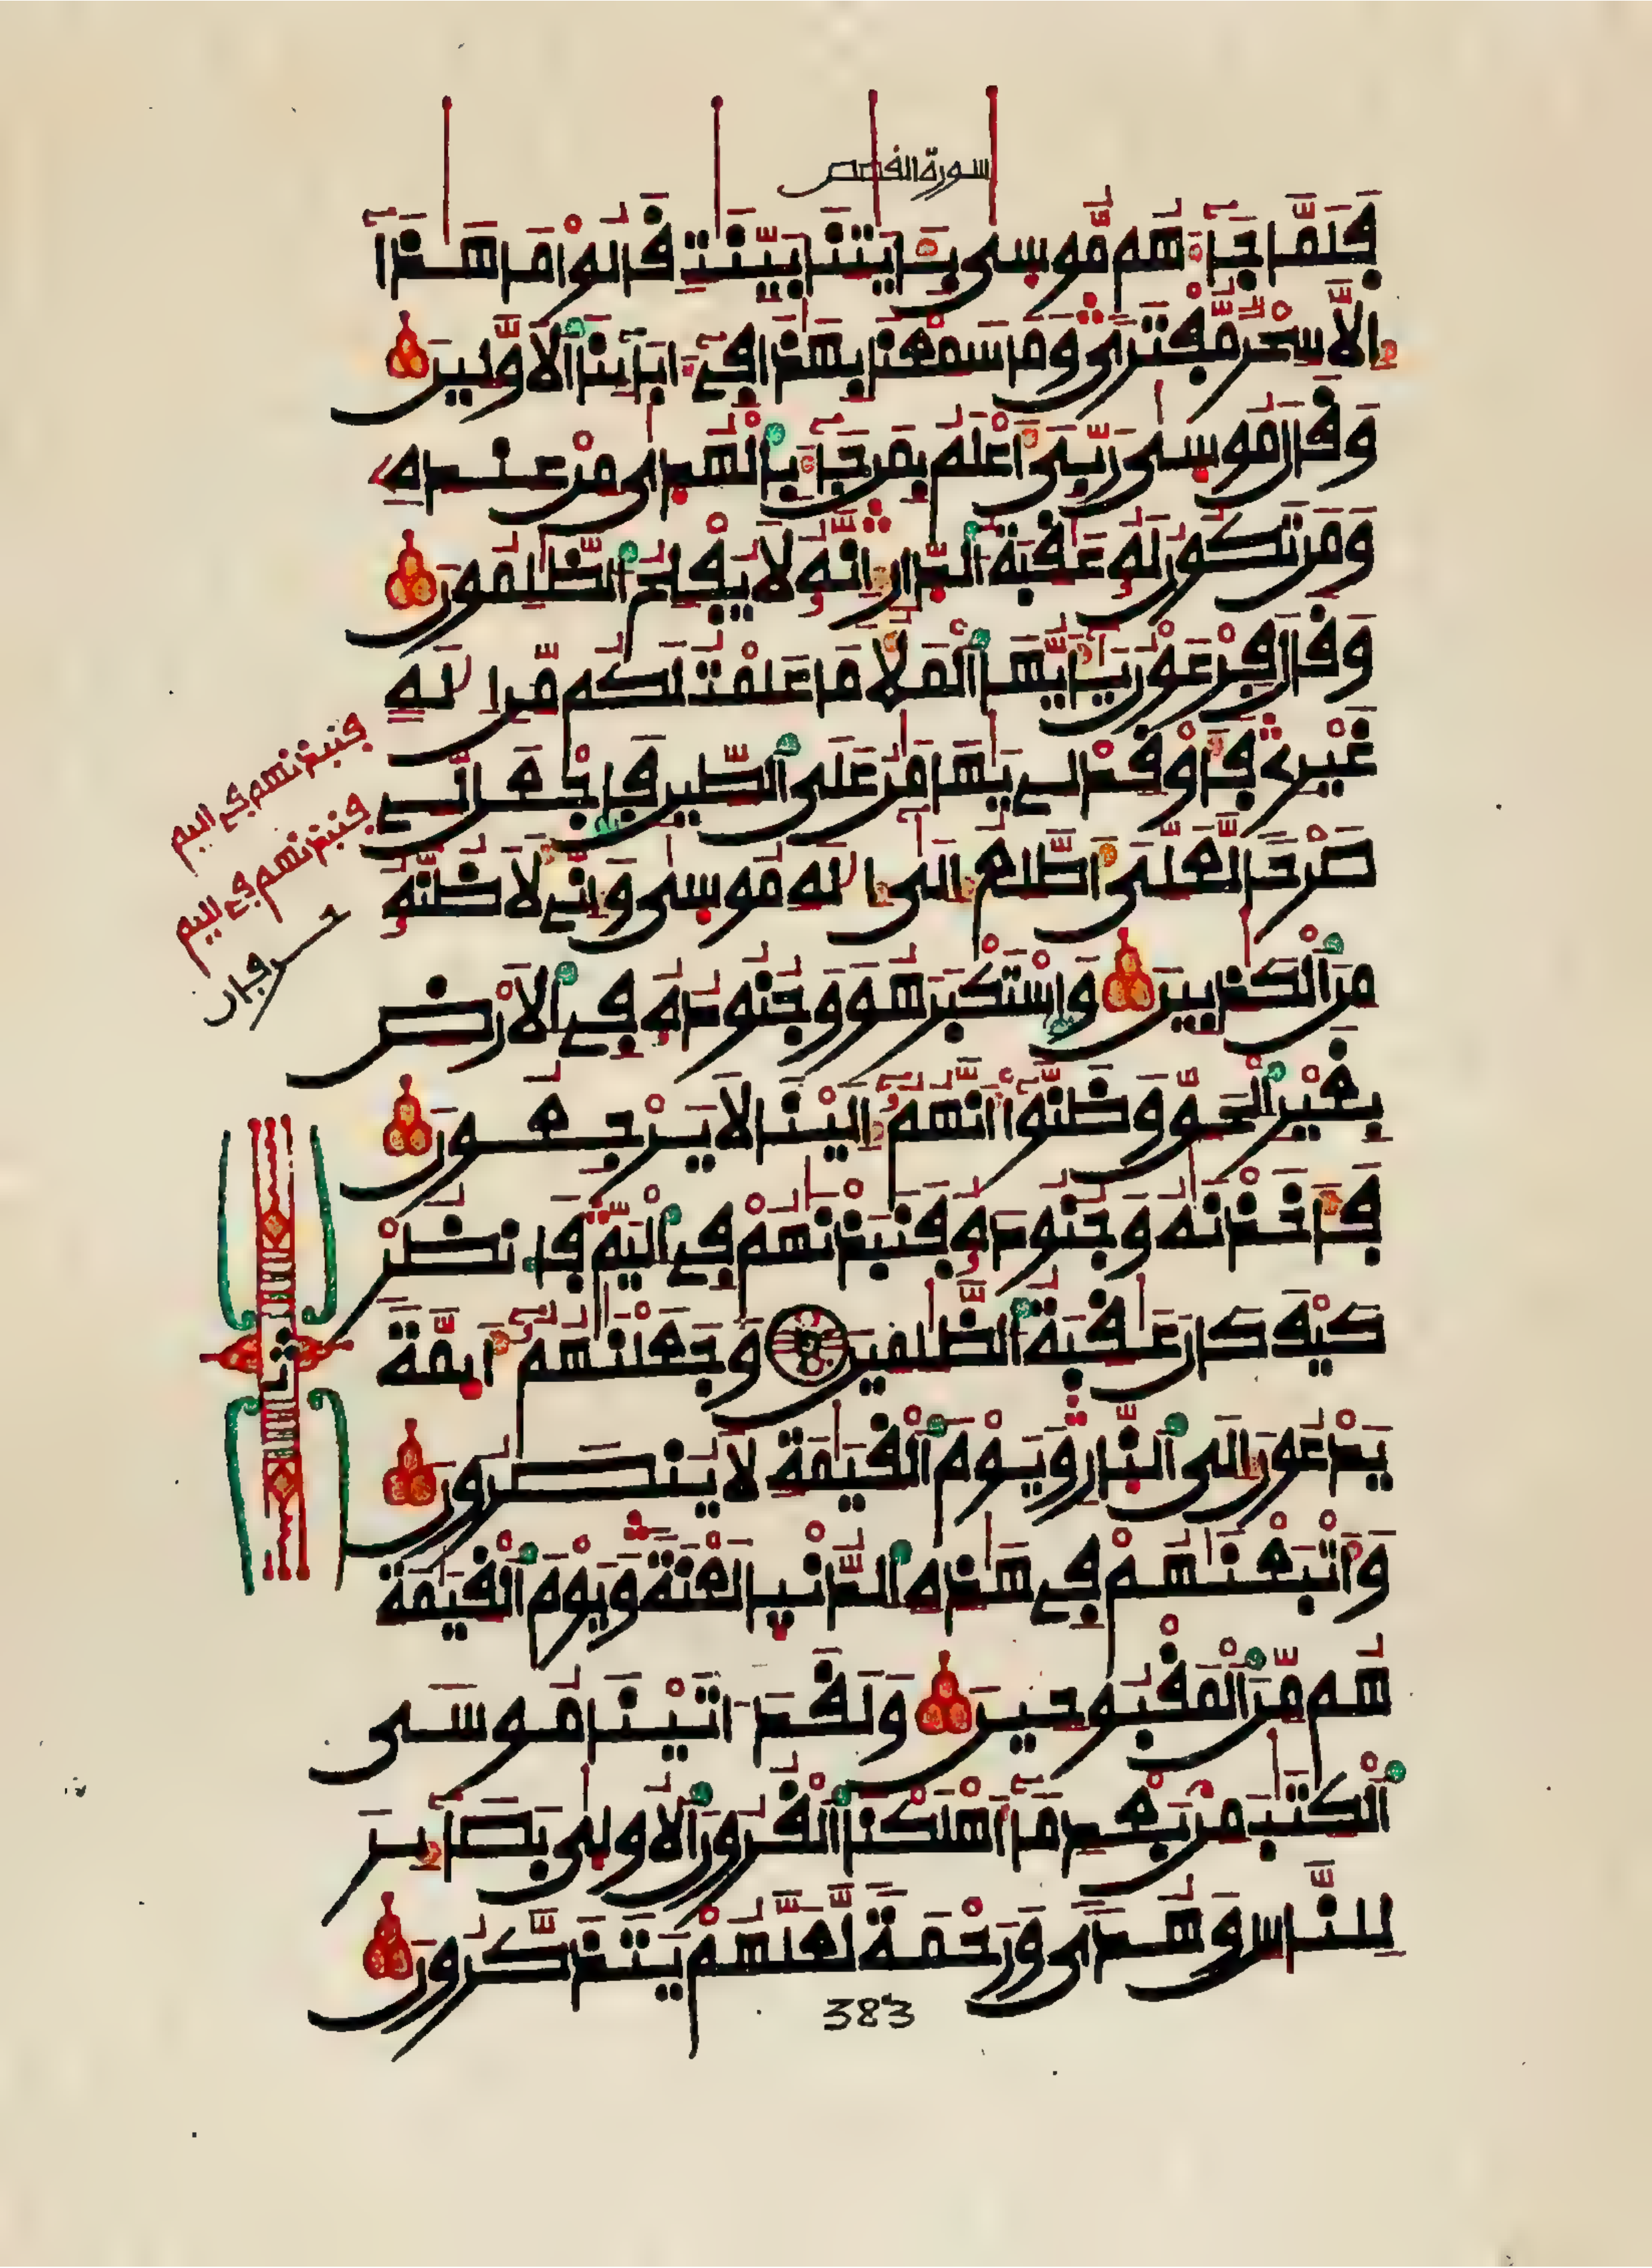 سورة القصص
فَلَمَّا جَآءَهُم مُّوسَىٰ بِـَٔايَـٰتِنَا بَيِّنَـٰتٍ قَالُواْ مَا هَـٰذَآ
إِلَّا سِحْرٌ مُّفْتَرًى وَمَا سَمِعْنَا بِهَـٰذَا فِےٓ ءَابَآئِنَا اَ۬لَاوَّلِينَ
وَقَالَ مُوسَىٰ رَبِّىَ أَعْلَمُ بِمَن جَآءَ بِالْهُدَىٰ مِنْ عِندِهِۦ
وَمَن تَكُونُ لَهُۥ عَـٰقِبَةُ اُ۬لدّ۪ارِ إِنَّهُۥ لَا يُفْلِحُ اُ۬لظَّـٰلِمُونَ
وَقَالَ فِرْعَوْنُ يَـٰٓأَيُّهَا اَ۬لْمَلَأُ مَا عَلِمْتُ لَكُم مِّنِ اِلَـٰهٍ
غَيْرِے فَأَوْقِدْ لِے يَـٰهَـٰمَـٰنُ عَلَى اَ۬لطِّينِ فَاجْعَل لِّے
صَرْحًا لَّعَلِّىَ أَطَّلِعُ إِلَىٰٓ إِلَـٰهِ مُوسَىٰ وَإِنِّے لَأَظُنُّهُۥ
مِنَ اَ۬لْكَـٰذِبِينَ وَاسْتَكْبَرَ هُوَ وَجُنُودُهُۥ فِے اِ۬لَارْضِ
بِغَيْرِ اِ۬لْحَقِّ وَظَنُّوٓاْ أَنَّهُمُۥٓ إِلَيْنَا لَا يَرْجِعُونَ
فَأَخَذْنَـٰهُ وَجُنُودَهُۥ فَنَبَذْنَـٰهُمْ فِے اِ۬لْيَمِّ فَانظُرْ
كَيْفَ كَانَ عَـٰقِبَةُ اُ۬لظَّـٰلِمِينَ وَجَعَلْنَـٰهُمُۥٓ أَئِمَّةً
يَدْعُونَ إِلَى اَ۬لنّ۪ارِ وَيَوْمَ اَ۬لْقِيَـٰمَةِ لَا يُنصَرُونَ
وَأَتْبَعْنَـٰهُمْ فِے هَـٰذِهِ اِ۬لدُّنْي۪ا لَعْنَةً وَيَوْمَ اَ۬لْقِيَـٰمَةِ
هُم مِّنَ اَ۬لْمَقْبُوحِينَ وَلَقَدَ اٰتَيْنَا مُوسَى
اَ۬لْكِتَـٰبَ مِنۢ بَعْدِ مَآ أَهْلَكْنَا اَ۬لْقُرُونَ اَ۬لُاولَىٰ بَصَآئِرَ
لِلنَّاسِ وَهُدًى وَرَحْمَةً لَّعَلَّهُمْ يَتَذَكَّرُونَ
فنبذنهم في اليم
فنبذنهم في اليم
383